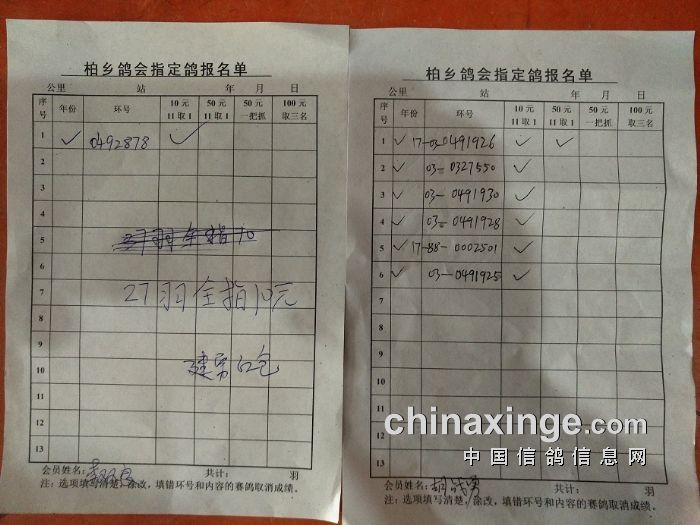 柏乡鸽会指定鸽报名单
公里 站 年 月 日
序号 年份 环号 10元 11取1 50元 11取1 50元 一把抓 100元 取三名
1 ✓ 0492878 ✓
2
3
4
5
6
7 27羽全指10元
8
9
10
11
12
13
会员姓名: 共计: 羽
注：选项填写清楚，涂改，填错环号和内容的赛鸽取消成绩。
柏乡鸽会指定鸽报名单
公里 站 年 月 日
序号 年份 环号 10元 11取1 50元 11取1 50元 一把抓 100元 取三名
1 ✓ 17-03-0491926 ✓ ✓
2 ✓ 03-0327550 ✓
3 ✓ 03-0491930 ✓
4 ✓ 03-0491928 ✓
5 ✓ 17-88-0002501 ✓
6 ✓ 03-0491925 ✓
7
8
9
10
11
12
13
会员姓名: 共计: 羽
注：选项填写清楚，涂改，填错环号和内容的赛鸽取消成绩。
chinaxinge.com
中国信鸽信息网